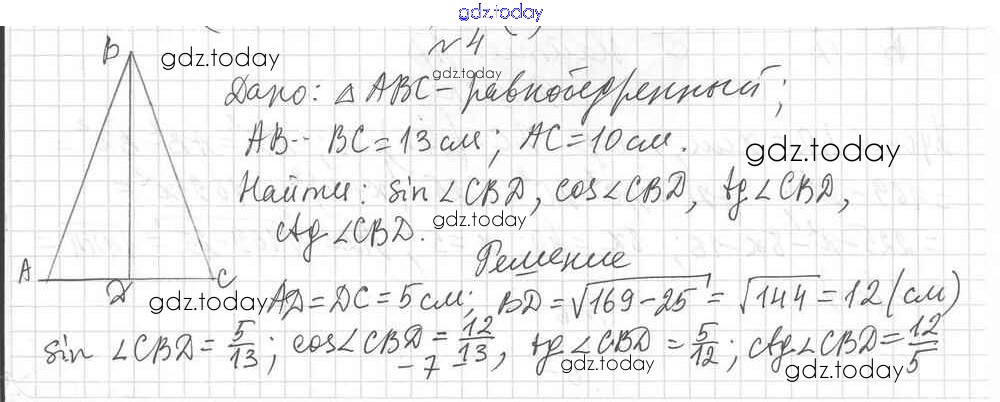 gdz.today
№4
gdz.today
gdz.today
B
Дано: △ABC - равнобедренный;
AB = BC = 13 см; AC = 10 см.
gdz.today
Найти: sin ∠CBD, cos ∠CBD, tg ∠CBD,
gdz.today
ctg ∠CBD.
Решение
A D C
gdz.today
AD = DC = 5 см; BD = √169 - 25 = √144 = 12 (см)
sin ∠CBD = 5/13; cos ∠CBD = 12/13, tg ∠CBD = 5/12; ctg ∠CBD = 12/5
gdz.today
gdz.today
- 7 -